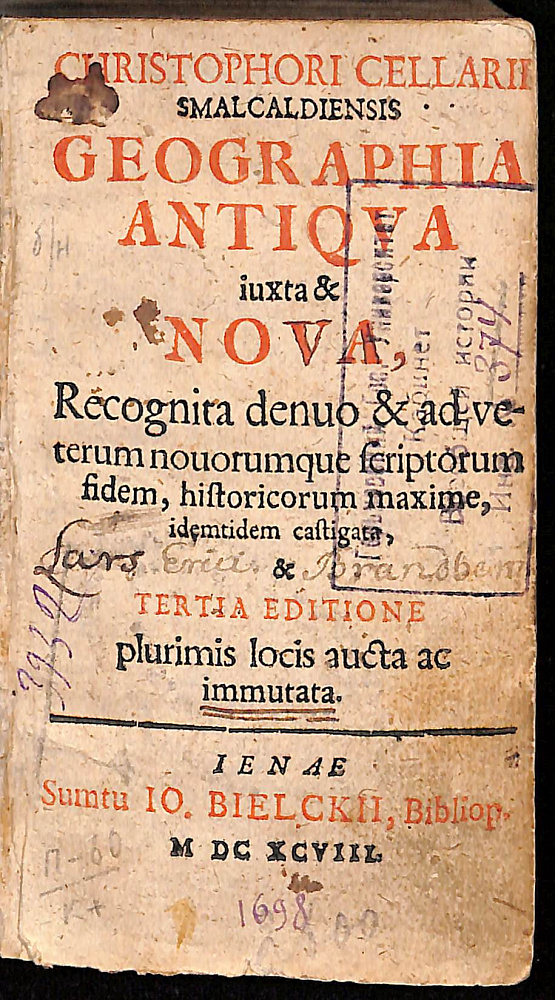 CHRISTOPHORI CELLARII
SMALCALDIENSIS
GEOGRAPHIA
ANTIQVA
iuxta &
NOVA,
Recognita denuo & ad ve-
terum nouorumque ſcriptorum
fidem, hiſtoricorum maxime,
idemtidem caſtigata,
&
Lars Erici Brandberg
TERTIA EDITIONE
plurimis locis aucta ac
immutata.
IENAE
Sumtu IO. BIELCKII, Bibliop.
M DC XCVIII.
1698
б/н
3932
П-60
К+
Кабинет
истории
374